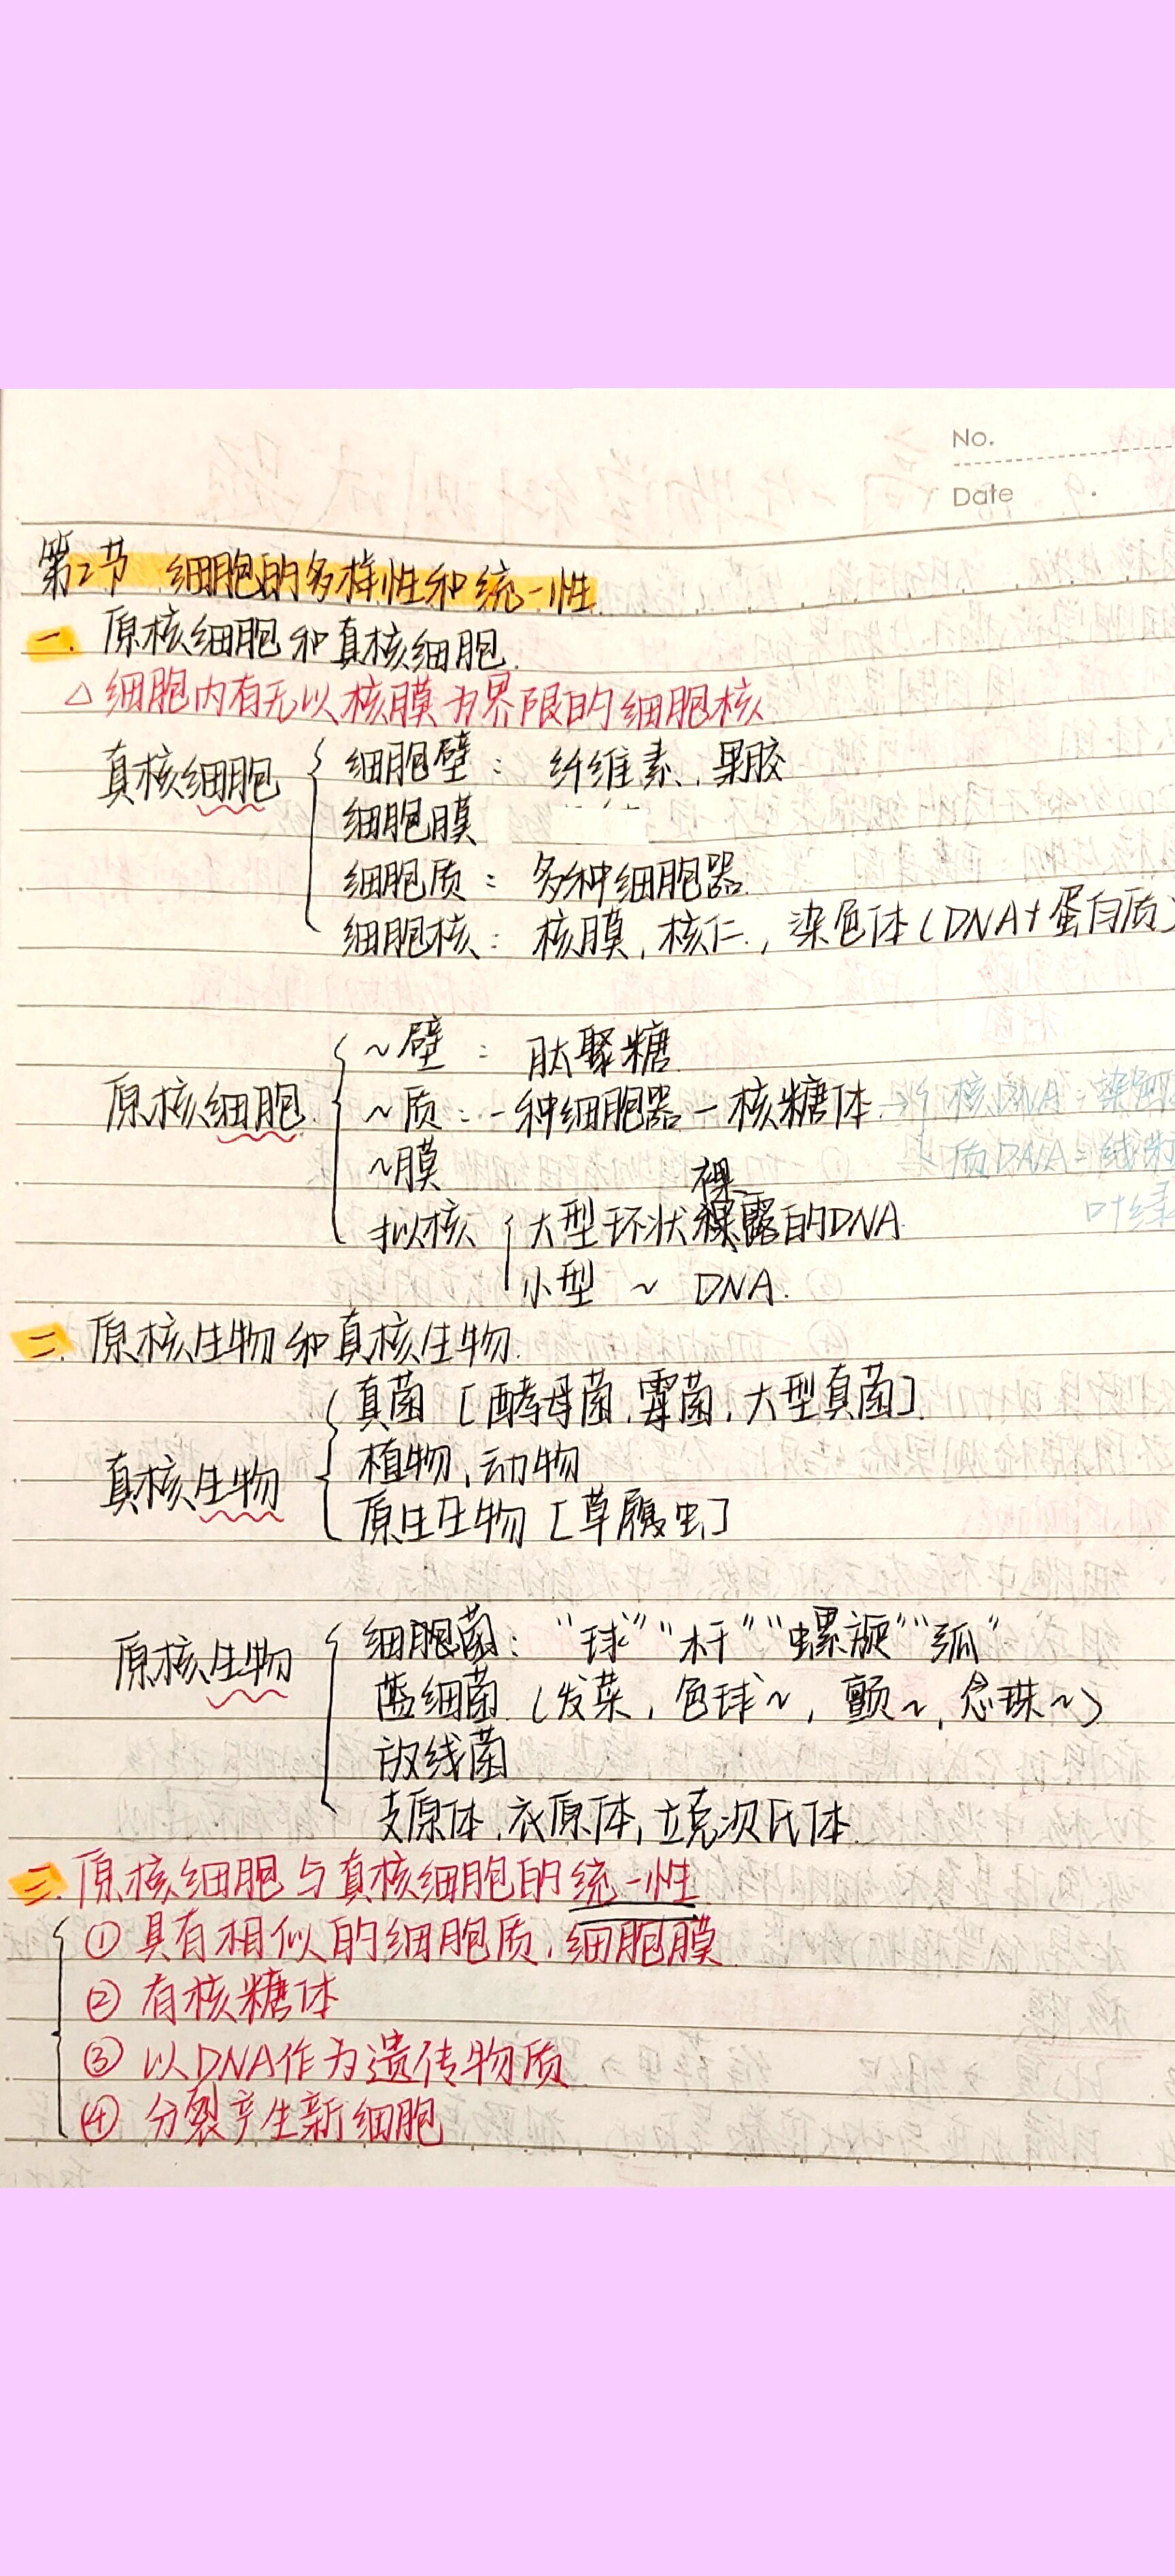 No.
Date
第2节 细胞的多样性和统一性
一. 原核细胞和真核细胞.
△细胞内有无以核膜为界限的细胞核
真核细胞
细胞壁: 纤维素、果胶
细胞膜
细胞质: 多种细胞器.
细胞核: 核膜, 核仁, 染色体(DNA+蛋白质)
原核细胞.
~壁: 肽聚糖.
~质: 一种细胞器-核糖体
核DNA:染色
质DNA:线粒
叶绿
~膜
拟核
大型环状裸露的DNA.
小型 ~ DNA.
二. 原核生物和真核生物.
真核生物
真菌[酵母菌, 霉菌, 大型真菌].
植物, 动物
原生生物[草履虫]
原核生物
细胞菌: “球”“杆”“螺旋”“弧”
蓝细菌.(发菜, 色球~, 颤~, 念珠~)
放线菌
支原体, 衣原体, 立克次氏体.
三. 原核细胞与真核细胞的统一性
① 具有相似的细胞质, 细胞膜
② 有核糖体
③ 以DNA作为遗传物质
④ 分裂产生新细胞